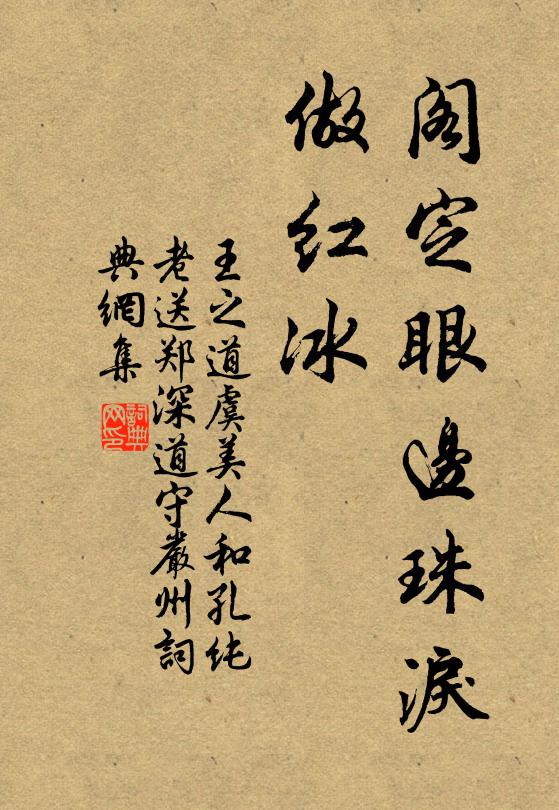 阁定眼邊珠淚
做红冰
王之道虞美人和孔纯
老送郑深道守嚴州詞
典網集
詞典
网印